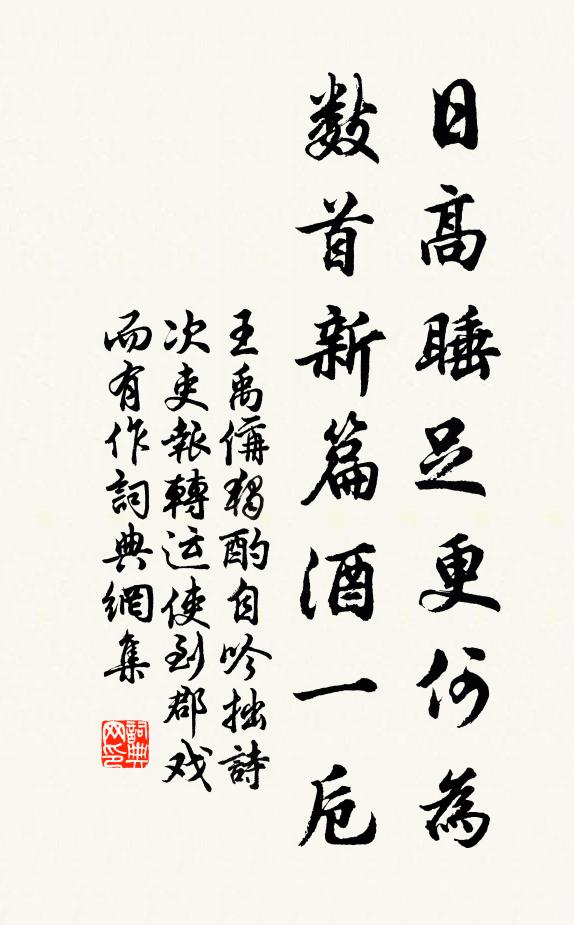 日高睡足更何為
数首新篇酒一卮
王禹偁獨酌自吟拙詩
次吏報轉运使到郡戏
而有作詞典網集
詞典网印